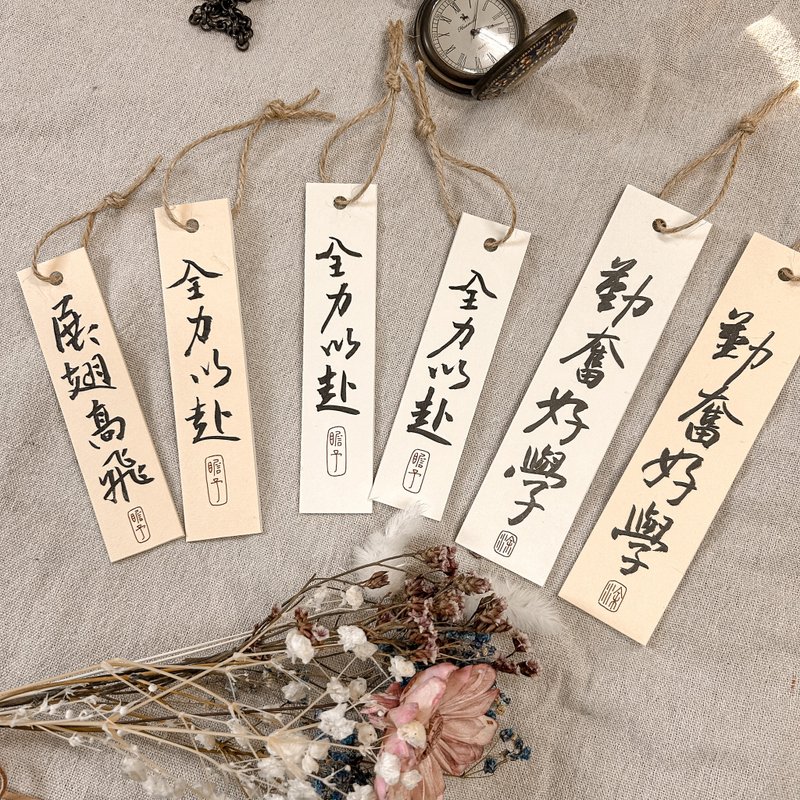 展翅高飛
瞻予
全力以赴
瞻予
全力以赴
瞻予
全力以赴
瞻予
勤奮好學
勤奮好學